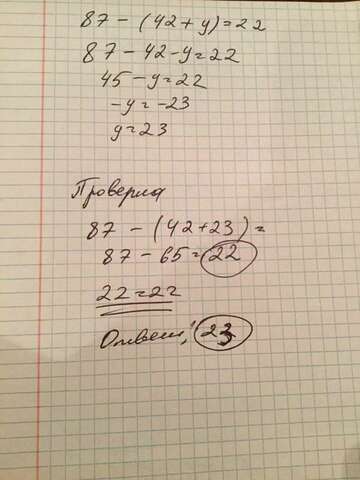 87 - (42 + y) = 22
87 - 42 - y = 22
45 - y = 22
-y = -23
y = 23
Проверка
87 - (42+23) =
87 - 65 = 22
22 = 22
Ответ: 23